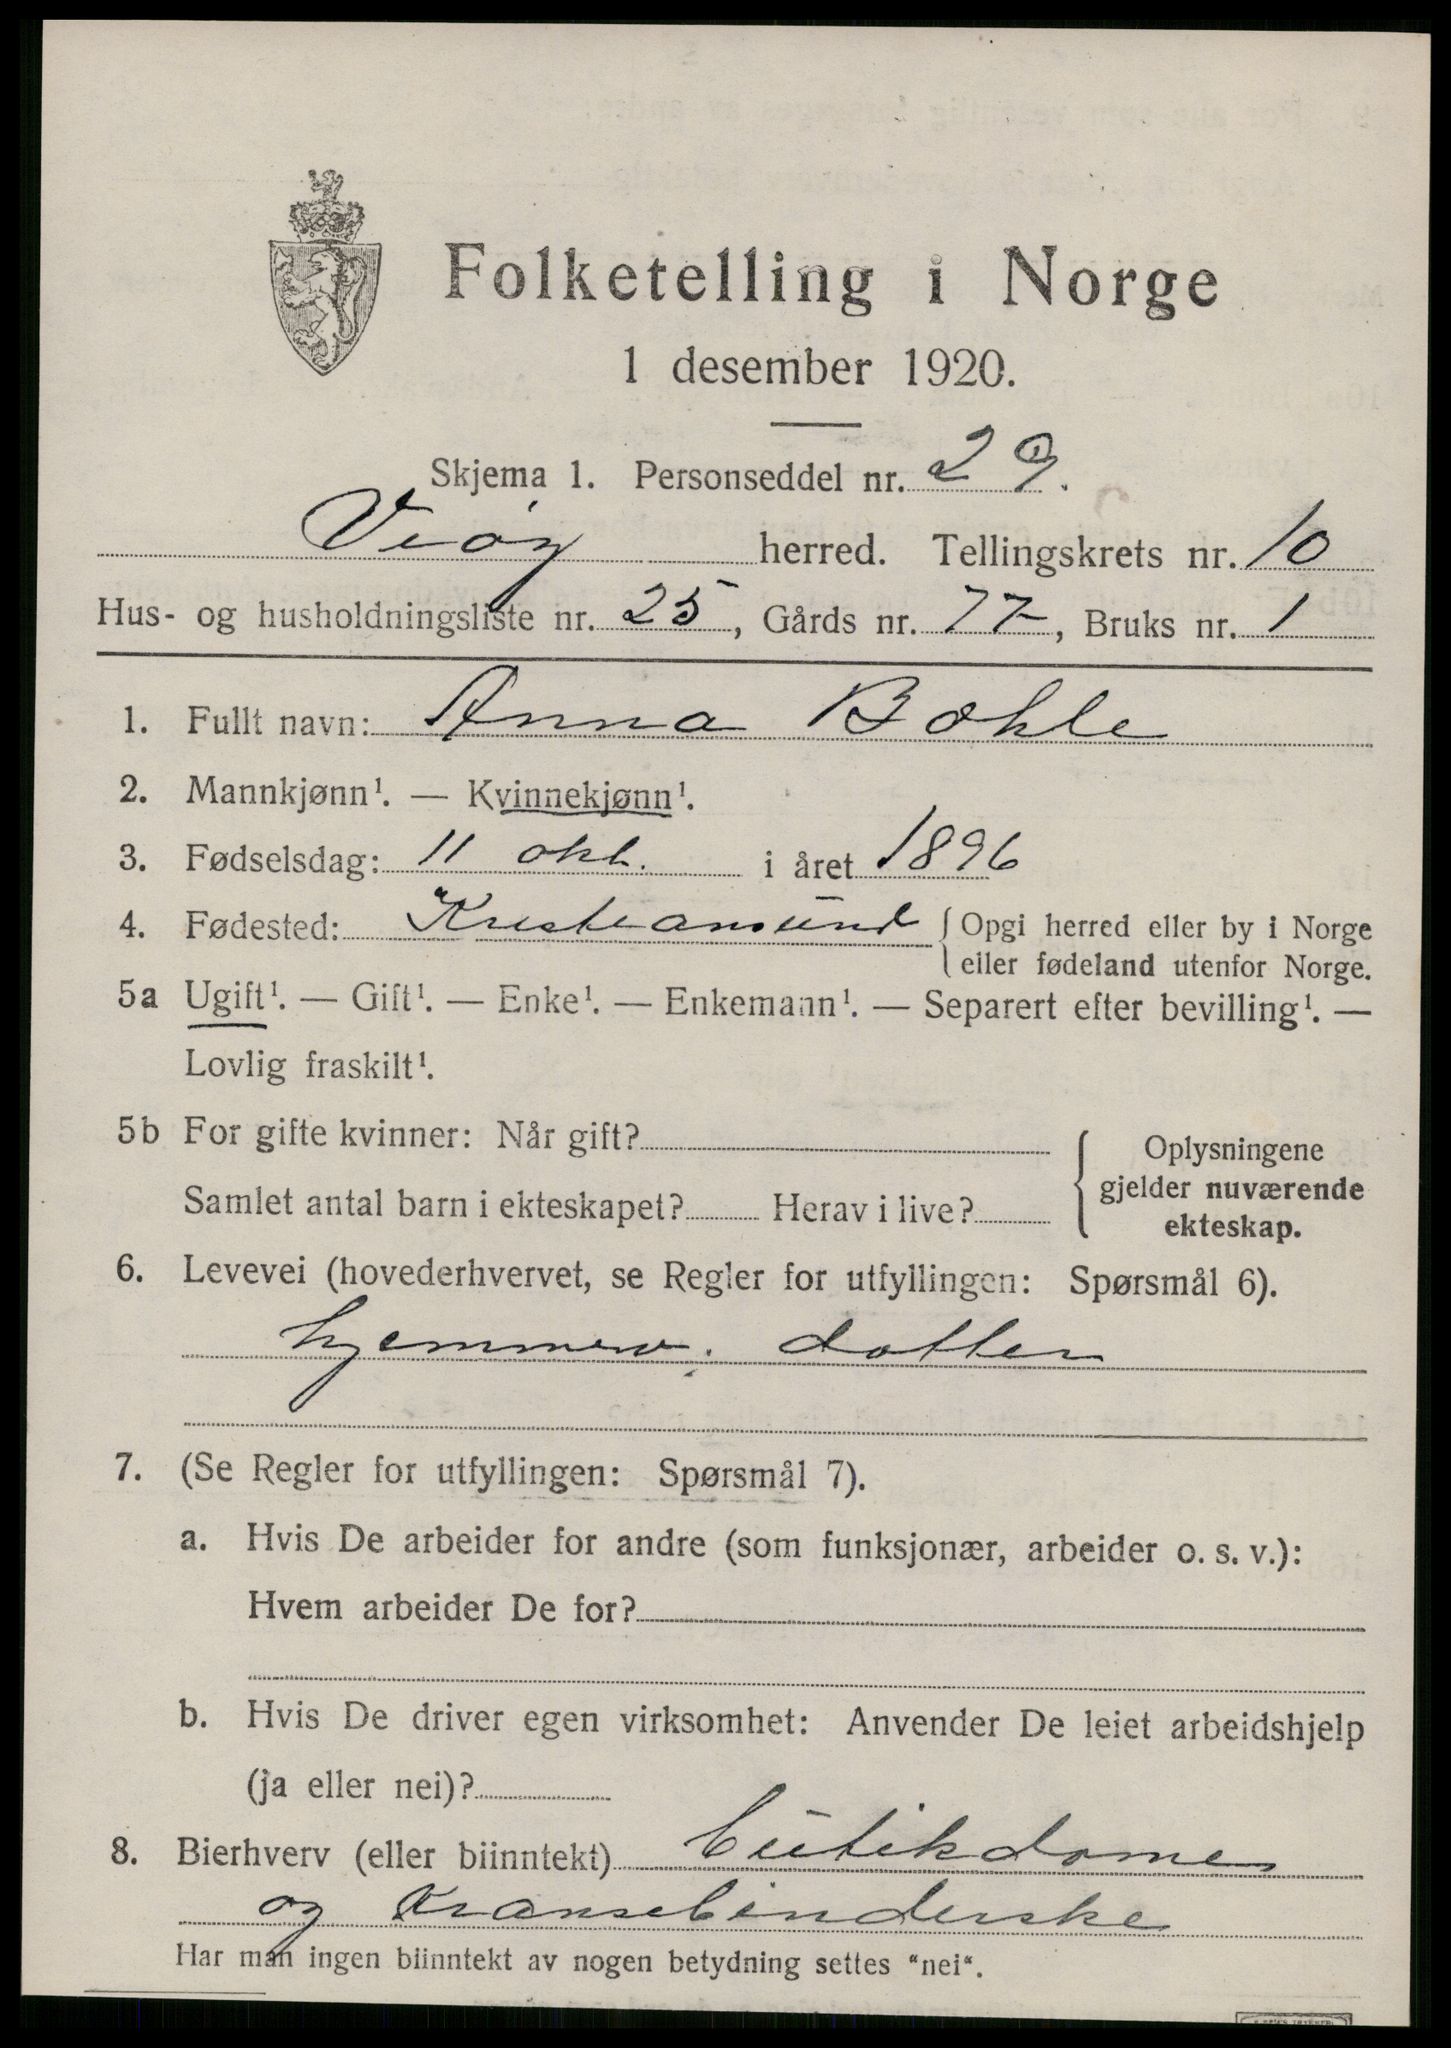 Folketelling i Norge
1 desember 1920.
Skjema 1. Personseddel nr. 29.
Veøy herred. Tellingskrets nr. 10
Hus- og husholdningsliste nr. 25, Gårds nr. 77, Bruks nr. 1
1. Fullt navn: Anna Bohle
2. Mannkjønn¹. — Kvinnekjønn¹.
3. Fødselsdag: 11 okt. i året 1896
4. Fødested: Kristiansund { Opgi herred eller by i Norge
eller fødeland utenfor Norge.
5a Ugift¹. — Gift¹. — Enke¹. — Enkemann¹. — Separert efter bevilling¹. —
Lovlig fraskilt¹.
5b For gifte kvinner: Når gift?
Samlet antal barn i ekteskapet? Herav i live?
Oplysningene
gjelder nuværende
ekteskap.
6. Levevei (hovederhvervet, se Regler for utfyllingen: Spørsmål 6).
hjemmev. datter
7. (Se Regler for utfyllingen: Spørsmål 7).
a. Hvis De arbeider for andre (som funksjonær, arbeider o. s. v.):
Hvem arbeider De for?
b. Hvis De driver egen virksomhet: Anvender De leiet arbeidshjelp
(ja eller nei)?
8. Bierhverv (eller biinntekt) butikdame
og kransebinderske
Har man ingen biinntekt av nogen betydning settes "nei".